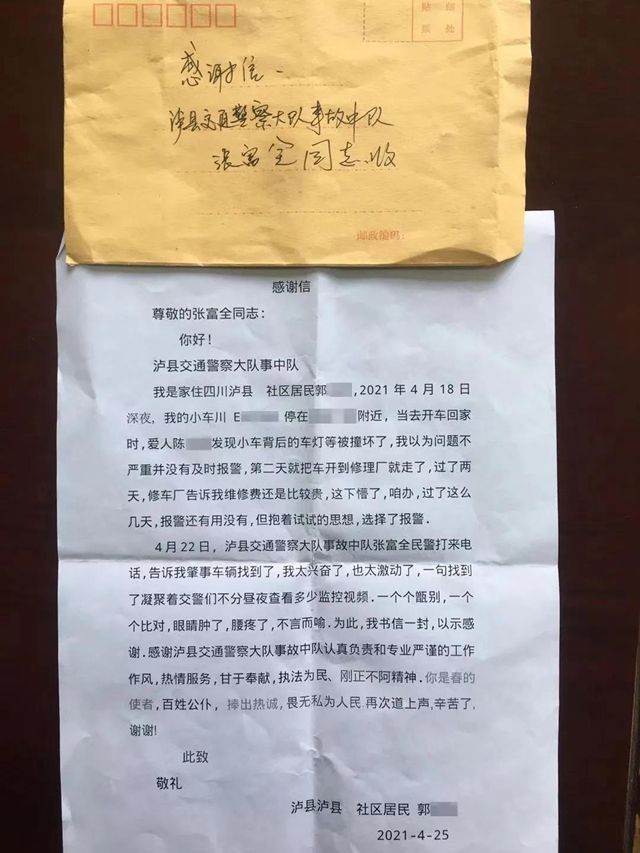 贴 邮
票 处
感谢信
泸县交通警察大队事故中队
张富全同志收
邮政编码：
感谢信
尊敬的张富全同志：
你好！
泸县交通警察大队事中队
我是家住四川泸县 社区居民郭 ,2021年4月18日
深夜，我的小车川 E 停在 附近，当去开车回家
时,爱人陈 发现小车背后的车灯等被撞坏了,我以为问题不
严重并没有及时报警,第二天就把车开到修理厂就走了,过了两
天,修车厂告诉我维修费还是比较贵,这下懵了,咱办,过了这么
几天,报警还有用没有,但抱着试试的思想,选择了报警.
4月22日，泸县交通警察大队事故中队张富全民警打来电
话,告诉我肇事车辆找到了,我太兴奋了,也太激动了,一句找到
了凝聚着交警们不分昼夜查看多少监控视频.一个个甑别,一个
个比对,眼睛肿了,腰疼了,不言而喻.为此,我书信一封,以示感
谢.感谢泸县交通警察大队事故中队认真负责和专业严谨的工作
作风,热情服务,甘于奉献,执法为民、刚正不阿精神.你是春的
使者,百姓公仆, 捧出热诚,畏无私为人民.再次道上声,辛苦了,
谢谢!
此致
敬礼
泸县泸县 社区居民 郭
2021-4-25